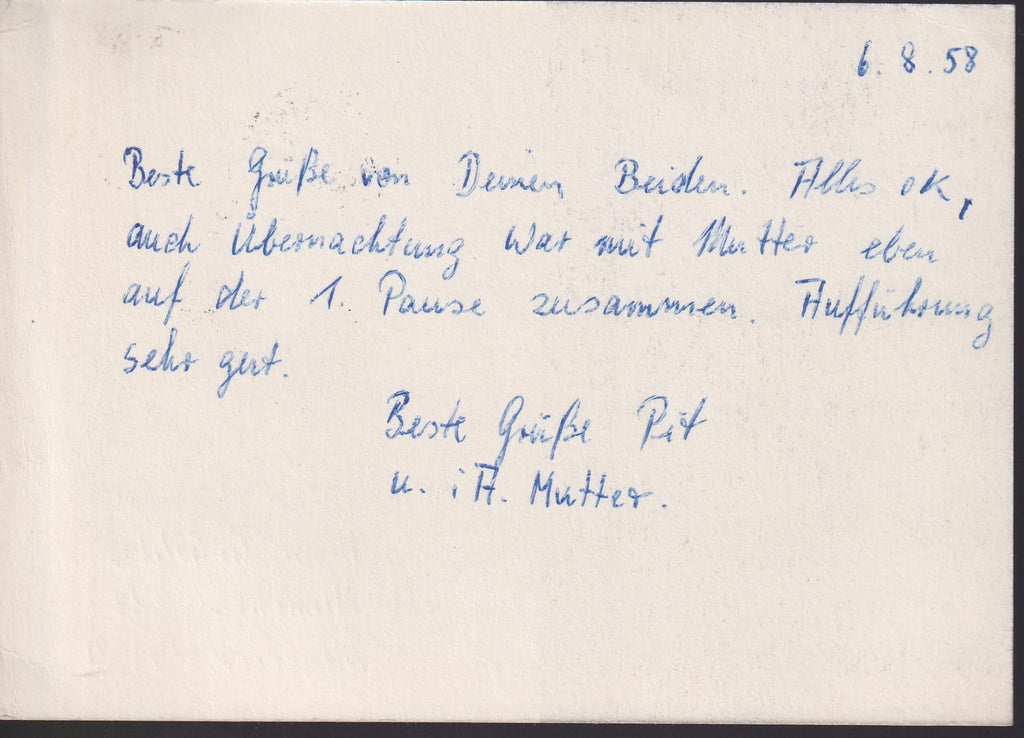 6. 8. 58
Beste Grüße von Deinen Beiden. Alles ok,
auch Übernachtung war mit Mutter eben
auf der 1. Pause zusammen. Aufführung
sehr gut.
Beste Grüße Pit
u. i A. Mutter.